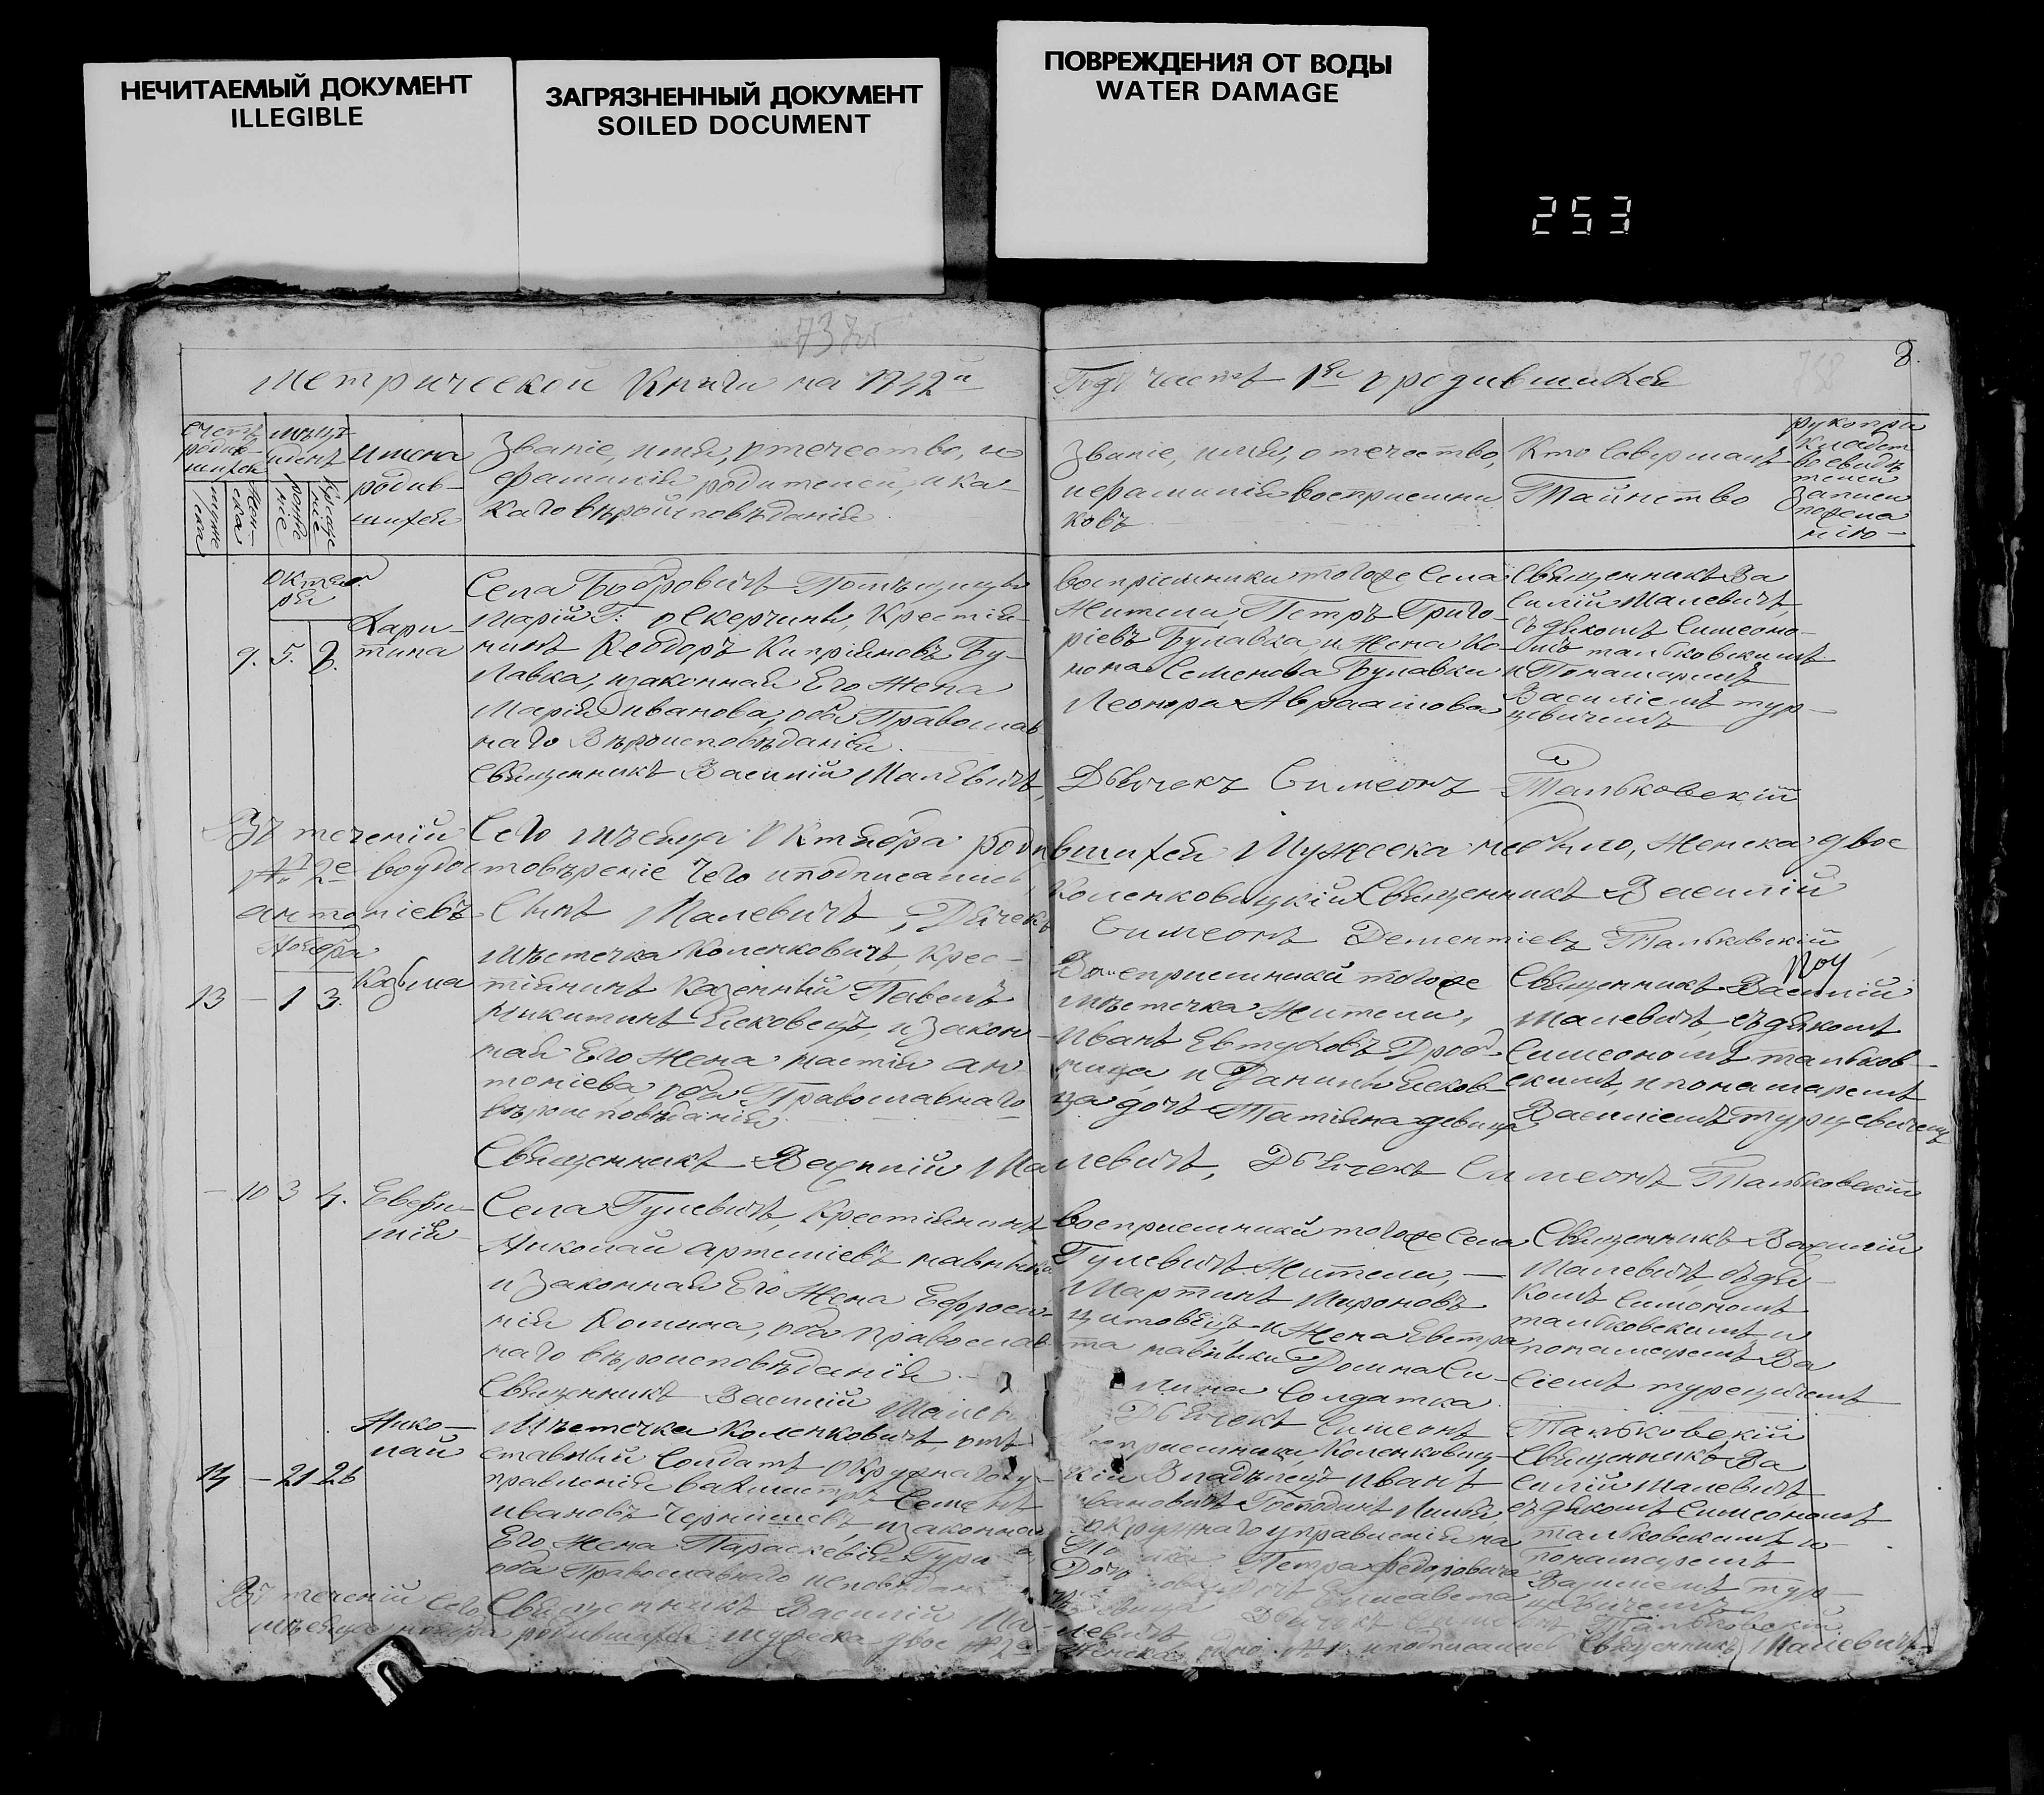 НЕЧИТАЕМЫЙ ДОКУМЕНТ
ILLEGIBLE
ЗАГРЯЗНЕННЫЙ ДОКУМЕНТ
SOILED DOCUMENT
ПОВРЕЖДЕНИЯ ОТ ВОДЫ
WATER DAMAGE
253
738
8.
Метрической Книги на
Года часть 1я о родившихся
Счетъ родив-
шихся
муже
ска
Жен-
ска
рожде
ніе
Креще
ніе
Имена
родив-
шихся
Званіе, имя, отечество, и
фамилія родителей, и ка-
каго вѣроисповѣданія
Званіе, имя, отечество,
и фамилія воспріемни
ковъ
Кто Совершалъ
Таинство
рукопри
кладст
во свидѣ
телей
записи
по жела
нію
Октяб
ря
9. 5. 8.
Хари-
тина
Села Бобровичъ Помѣщицы
Маріи Г: Оскерчины, Крестія-
нинъ Ѳеодоръ Кипріяновъ Бу-
лавка, и законная Его Жена
Марія Иванова, оба Православ
наго Вѣроисповѣданія
Священникъ Василій Малевичъ,
Воспріемники тогоже Села
Жители Петръ Григо-
ріевъ Булавка, и Жена Ко-
нона Семенова Булавки
Леонора Авраамова
Священникъ Ва
силій Малевичъ,
съ дьякомъ Симеоно-
мъ тальковскимъ
и Пономаремъ
Василіемъ тур-
цевичемъ
Дьячекъ Симеонъ Тальковскій
Въ теченіи Сего мѣсяца Октября родившихся Мужеска небыло, Женска двое
№ 2е во удостовѣреніе Чего и подписались, Коленковицкій Священникъ Василій
антоніевъ Сынъ Малевичъ, Дьячекъ Симеонъ Дементіевъ Тальковскій
Ноября
13 - 1 3.
Козьма
Мѣстечка Коленковичъ, Крес-
тіянинъ Казенный Павелъ
Никитинъ Ясковецъ, и Закон-
ная Его Жена настія ан-
тоніева, оба Православнаго
вѣроисповѣданія
Воспріемники тогоже
Мѣстечка Жители,
Иванъ Евтуховъ Дроб-
ница, и Данилы Ясков-
ца дочь Татіяна девица
Священникъ Василій
Малевичъ, съ дьякомъ
Симеономъ тальков-
скимъ, и пономаремъ
Василіемъ турцевичемъ
Священникъ Василій Малевичъ, Дьячекъ Симеонъ Тальковскій
- 10 3 4.
Евфи-
мія
Села Гулевичъ, Крестіянинъ
Николай артеміевъ
и Законная Его Жена Ефроси-
нія Комина, оба Православ
наго вѣроисповѣданія
Священникъ Василій
Воспріемники тогоже Села
Гулевичъ Жители, -
Мартинъ Мироновъ
и Жена Евстра
та Домна Си-
Солдатка
Священникъ Василій
Малевичъ, съ дья-
комъ Симономъ
тальковскимъ и
пономаремъ Ва
сіемъ турецичемъ
Дьячекъ Симеонъ Тальковскій
14 - 21 26
Нико-
лай
Мѣстечка Коленковичъ от-
ставный Солдатъ окружнаго у-
правленія вахмистръ Семенъ
Ивановъ Чернышевъ, и законная
Его Жена Параскевія
оба Православнаго
Коленковиц-
кій Владѣлецъ Иванъ
Господинъ
окружнаго управленія на
Петра Федоровича
Дочь Елисавета
Священникъ Ва
силій Малевичъ,
съ дьякомъ Симеономъ
тальковскимъ и
пономаремъ
Василіемъ тур-
цевичемъ
Священникъ Василій Малевичъ Дьячекъ Тальковскій
Въ теченіи Сего
мѣсяца ноября родившихся мужеска двое
Женска подписались Священникъ Малевичъ